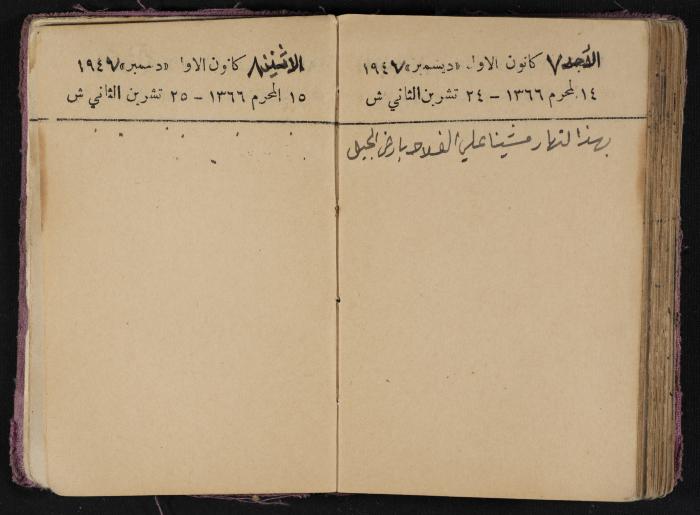 الأحد ٧ كانون الاول «ديسمبر» ١٩٤٧
١٤ المحرم ١٣٦٦ – ٢٤ تشرين الثاني ش
بهذا النهار مشينا علي الفلاحه بارض الجبل
الاثنين ٨ كانون الاول «دسمبر» ١٩٤٧
١٥ المحرم ١٣٦٦ – ٢٥ تشرين الثاني ش